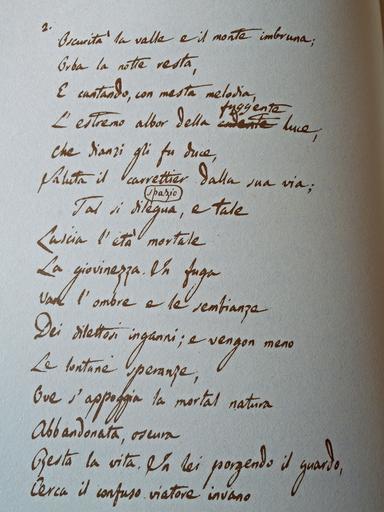 2.
Oscurità la valle e il monte imbruna;
Orba la notte resta,
E cantando, con mesta melodia,
fuggente
L'estremo albor della luce,
che dianzi gli fu duce,
Saluta il carrettier dalla sua via;
spazio
Tal si dilegua, e tale
Lascia l'età mortale
La giovinezza. In fuga
Van l'ombre e le sembianze
Dei dilettosi inganni; e vengon meno
Le lontane speranze,
Ove s'appoggia la mortal natura
Abbandonata, oscura
Resta la vita. In lei porgendo il guardo,
Cerca il confuso viatore invano